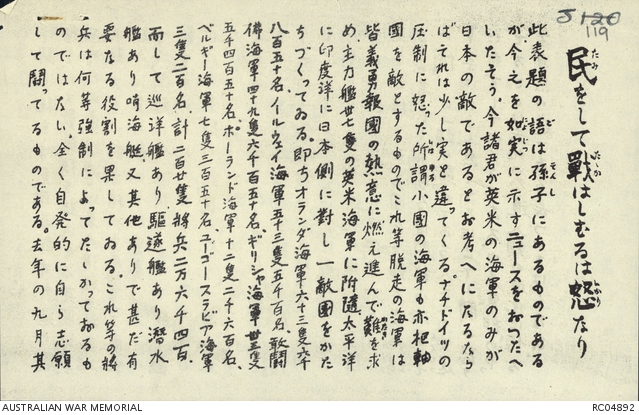 J-120
119
民をして戰はしむるは怒なり
たみ
たたか
いかり
此表題の語は孫子にあるものである
そんし
が今之を如実に示すニュースをおつたへ
によじつ
いたそう。今諸君が英米の海軍のみが
日本の敵であるとお考へになるなら
ばそれは少し実と違ってくるナチドイツの
圧制に怒った所謂小國の海軍も亦枢軸
國を敵とするものでこれ等脱走の海軍は
皆義勇報國の熱意に燃え進んで難を求
め主力艦卅七隻の英米海軍に附随太平洋
に印度洋に日本側に對し一敵國をかた
ちづくってゐる即ちオランダ海軍六十三隻六千
八百五十名、ノールウェイ海軍五十三隻五千百名、敢鬪
佛海軍四十九隻六千百五十名、ギリシャ海軍卅三隻
五千四百五十名、ポーランド海軍十二隻二千六百名、
ベルギー海軍七隻三百五十名、ユーゴースラビア海軍
三隻二百名、計二百廿隻將兵二万六千四百、
而して巡洋艦あり驅逐艦あり潜水
艦あり哨海艇又其他ありで甚だ有
要なる役割を果してゐる。これ等の將
兵は何等強制によってたゝかっておるも
のではない全く自発的に自ら志願
して闘ってるものである。去年の九月其
AUSTRALIAN WAR MEMORIAL
RC04892